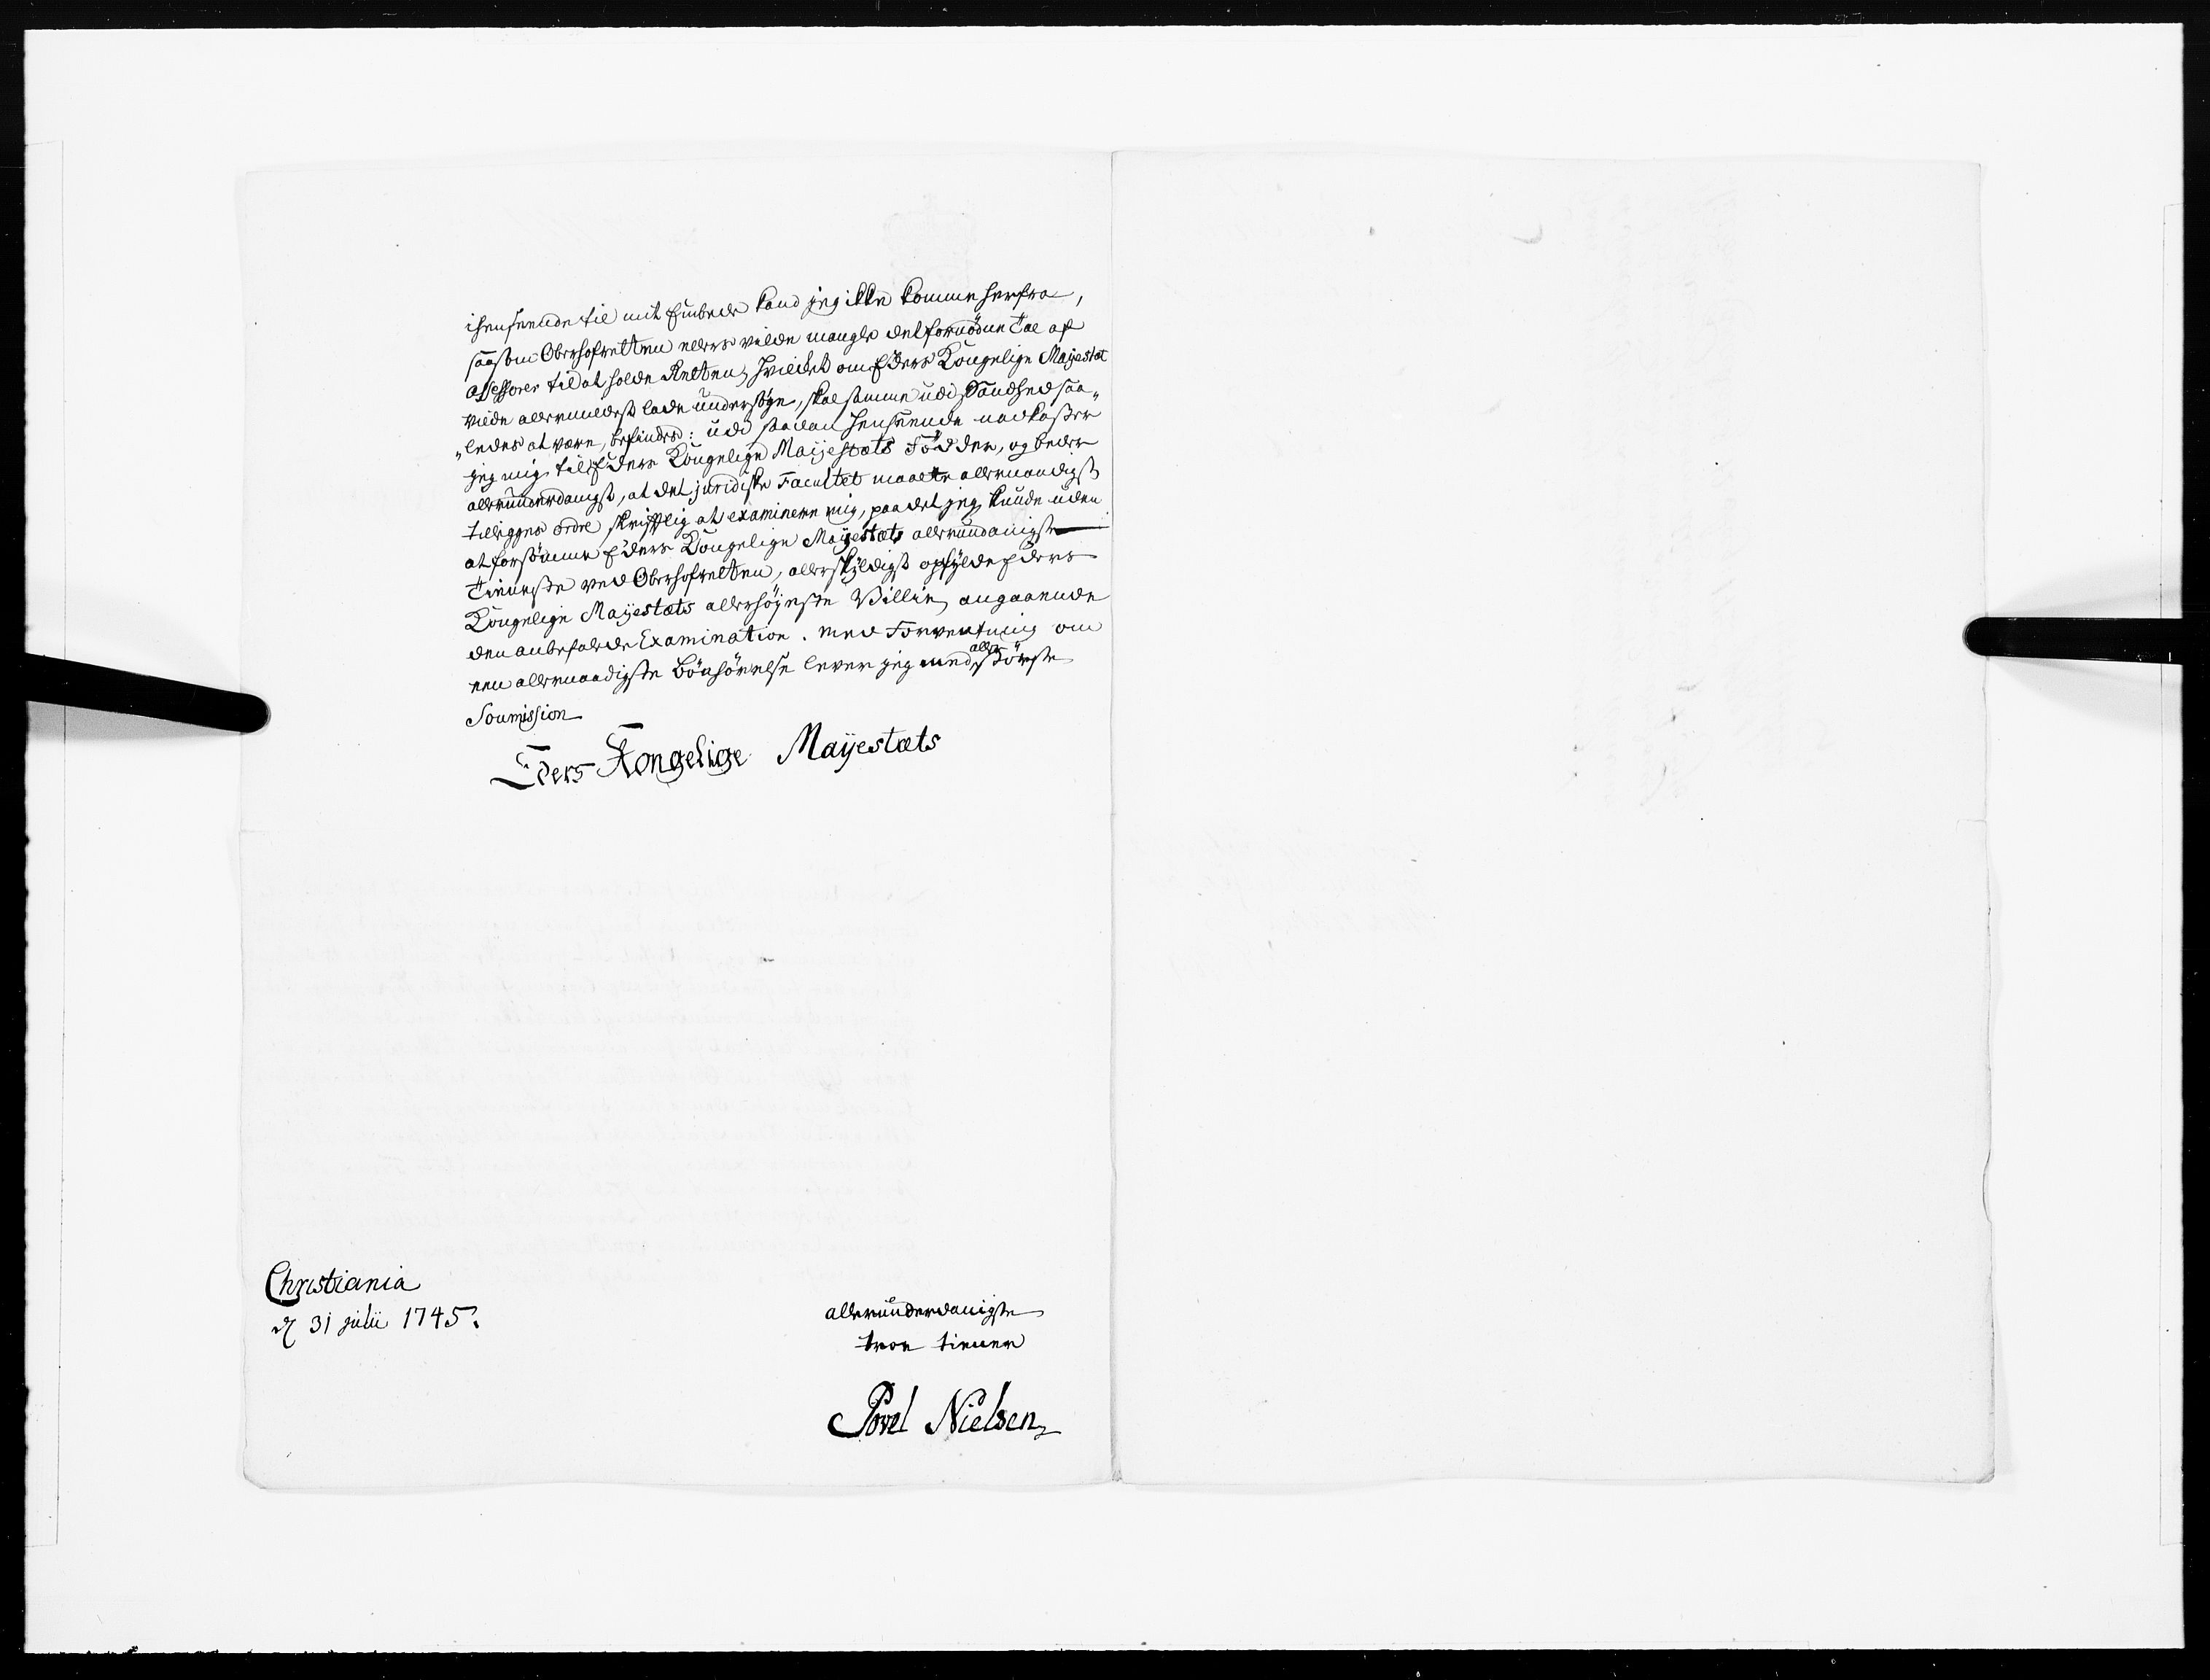 ihenseende til mit Embede kand jeg ikke komme herfra,
saasom Oberhofretten ellers vilde mangle det fornödne Tal af
assessorer til at holde Retten, hvilcket om Eders Kongelige Mayestæt
vilde allernaadigst lade undersöge, skal komme udi Sandhed saa„
„ledes at være, befindes: udi saadan henseende nedkaster
jeg mig til Eders Kongelige Mayestæts Födder, og beder
allerunderdanigst, at det juridiske Facultet maatte allernaadigst
tillegges ordre skrifftlig at examinere mig, paa det jeg kunde uden
at forsömme Eders Kongelige Mayestæts allerunderdanigste
Tieneste ved Oberhofretten, allerskyldigst opfylde Eders
Kongelige Mayestæts allerhöyeste Villie, angaaende
den anbefalede Examination. Med Forventning om
een allernaadigste Bönhörelse lever jeg med allerstörste
Soumission
Eders Kongelige Mayestæts
Christiania
d 31 julii 1745.
allerunderdanigste
troe tiener
Povel Nielsen